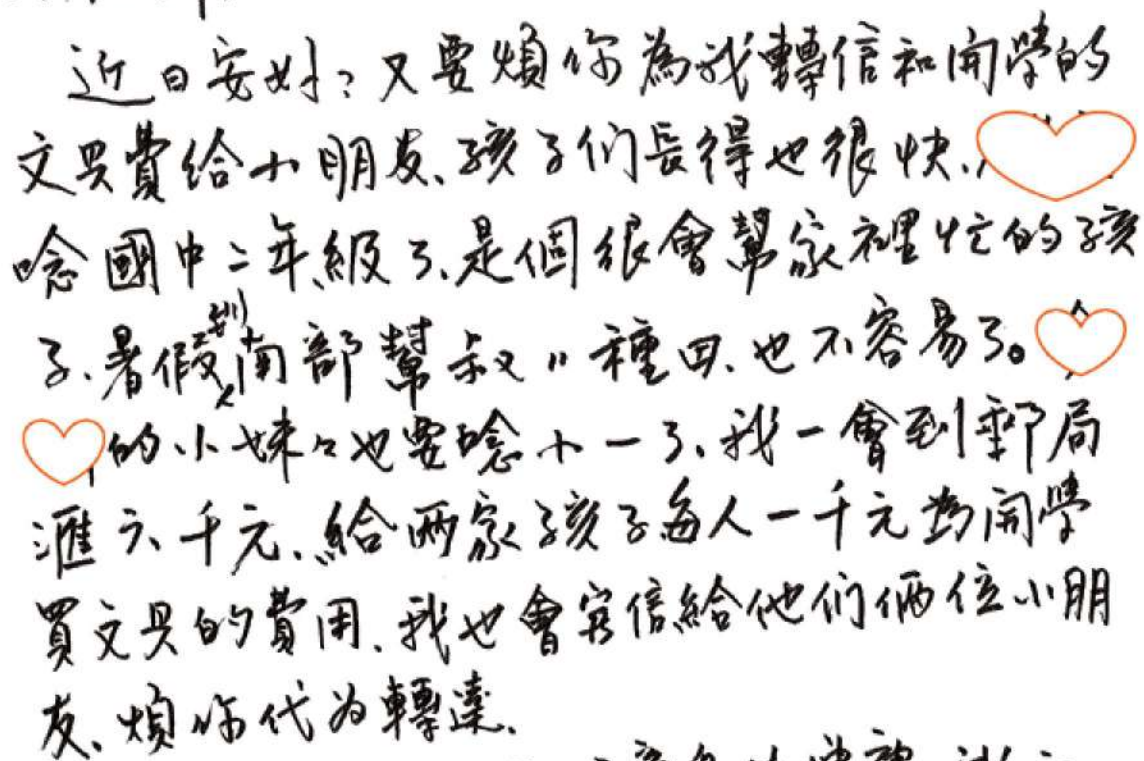 近日安好?又要煩你為我轉信和開學的
文具費給小朋友、孩子们長得也很快、
唸國中二年級了、是個很會幫家裡忙的孩
子、暑假到南部幫叔〃種田、也不容易了。
的小妹々也要唸小一了、我一會到郵局
滙六千元、給兩家孩子每人一千元為開學
買文具的費用、我也會寫信給他们倆位小朋
友、煩你代为轉達、